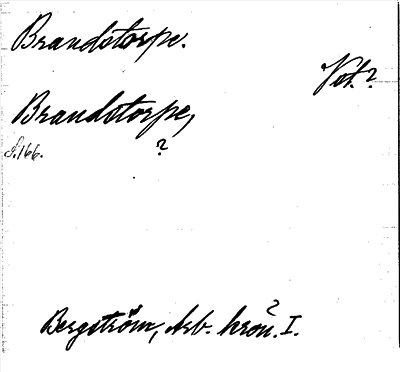 Brandstorpe.
Vet.?
Brandstorpe,
s.166.
?
Bergström, Arb. krön. I.